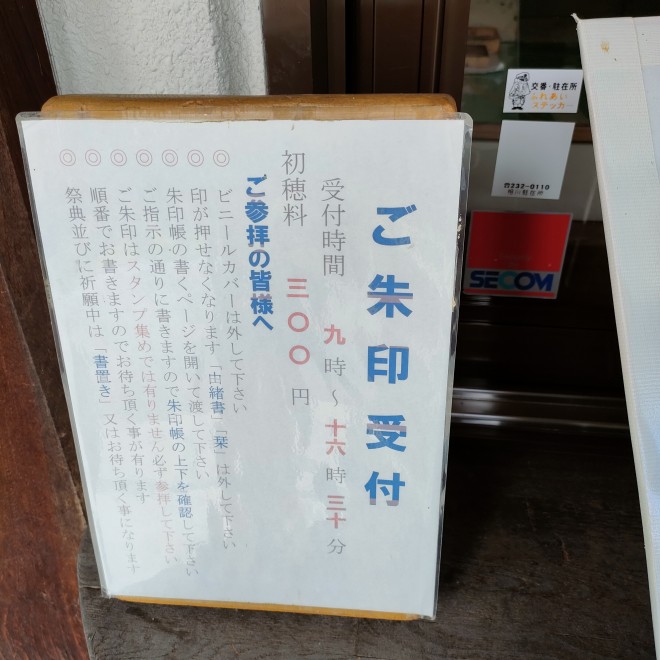 ご朱印受付
受付時間 九時～十六時三十分
初穂料 三〇〇円
ご参拝の皆様へ
◎ビニールカバーは外して下さい
◎印が押せなくなります「由緒書」「栞」は外して下さい
◎朱印帳の書くページを開いて渡して下さい
◎ご指示の通りに書きますので朱印帳の上下を確認して下さい
◎ご朱印はスタンプ集めでは有りません必ず参拝して下さい
◎順番でお書きますのでお待ち頂く事が有ります
◎祭典並びに祈願中は「書置き」又はお待ち頂く事になります
交番・駐在所
ふれあい
ステッカー
☎232-0110
SECOM